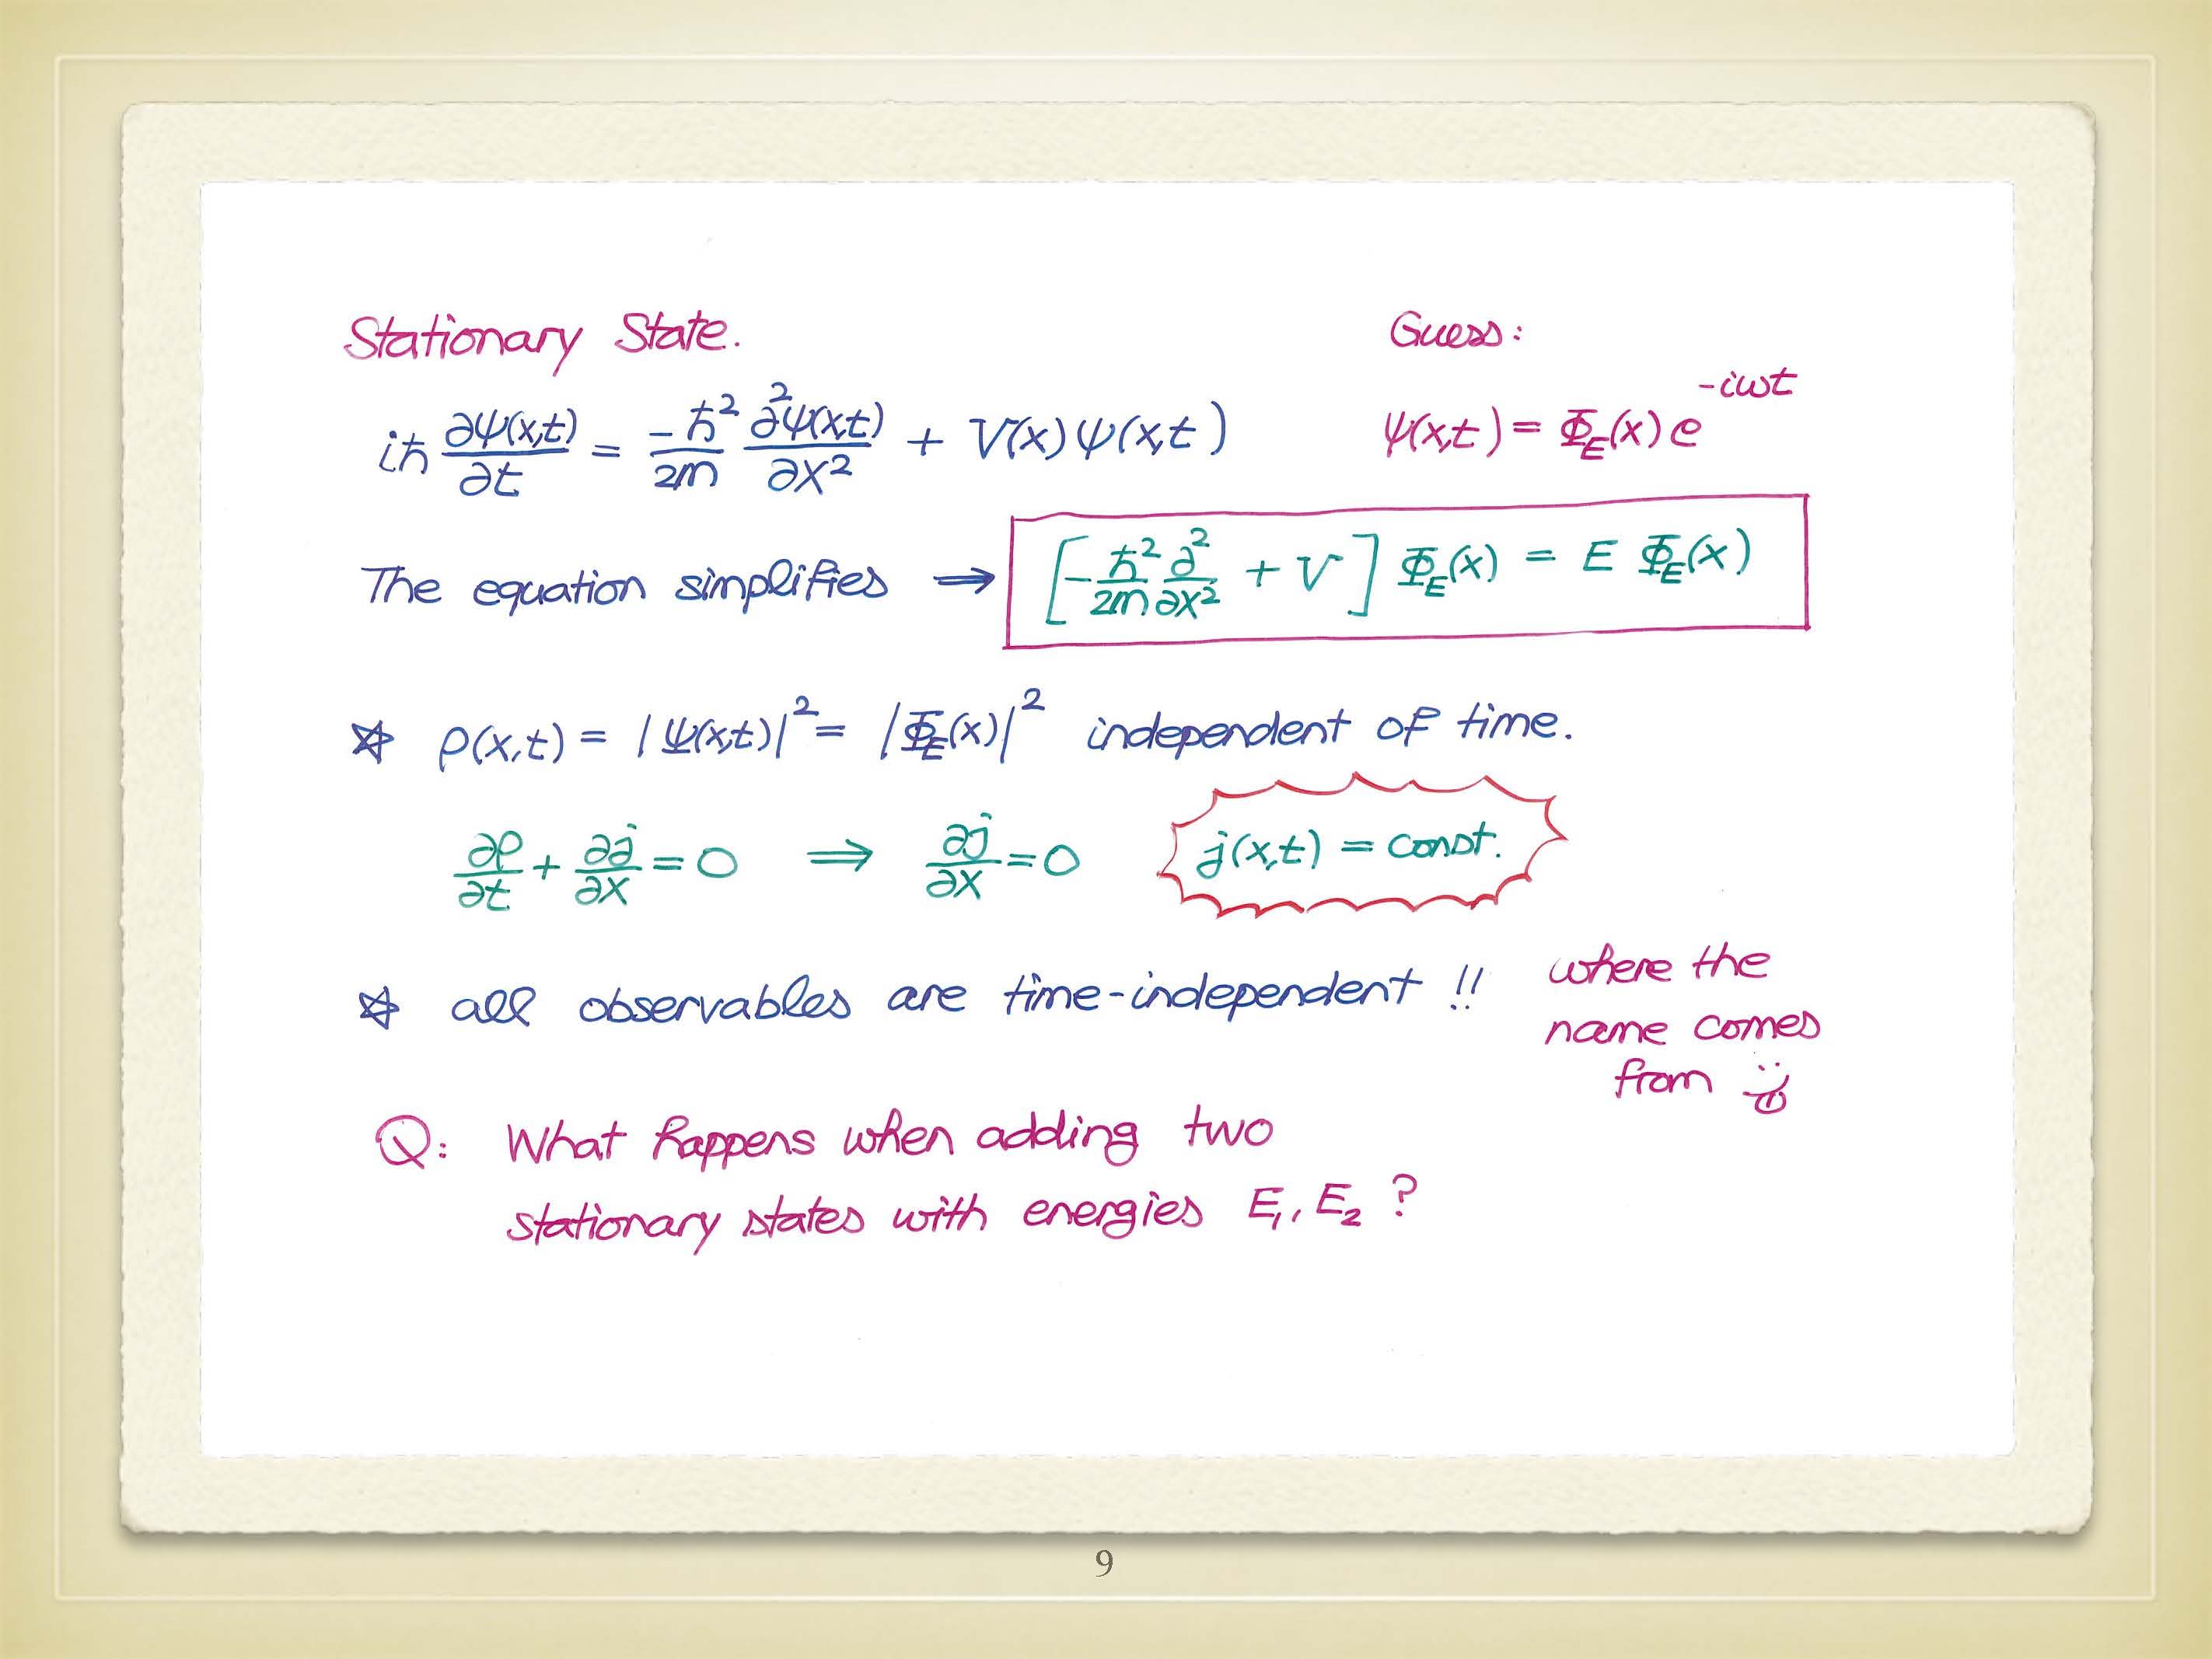 Stationary State.
Guess:
iħ ∂ψ(x,t)/∂t = -ħ²/2m ∂²ψ(x,t)/∂x² + V(x)ψ(x,t)
ψ(x,t) = Φ_E(x) e^{-iωt}
The equation simplifies ⇒ [-ħ²/2m ∂²/∂x² + V] Φ_E(x) = E Φ_E(x)
☆ ρ(x,t) = |ψ(x,t)|² = |Φ_E(x)|² independent of time.
∂ρ/∂t + ∂j/∂x = 0 ⇒ ∂j/∂x = 0 j(x,t) = const.
☆ all observables are time-independent !!
where the
name comes
from
Q: What happens when adding two
stationary states with energies E₁, E₂ ?
9